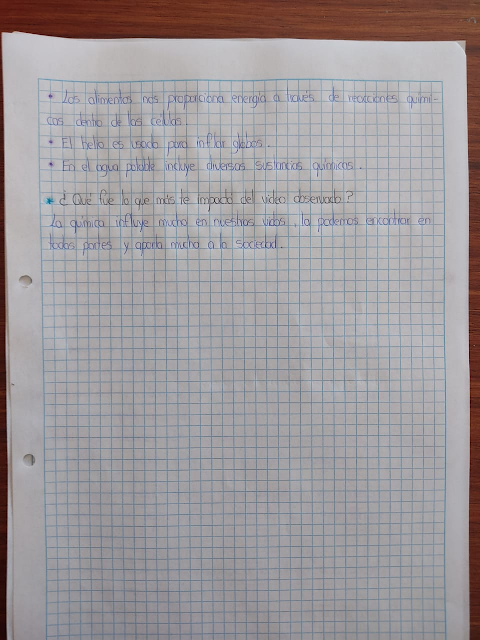 * Los alimentos nos proporciona energía a través de reacciones quími-
cas dentro de las celulas.
* El helio es usado para inflar globos.
* En el agua potable incluye diversas sustancias químicas.
* ¿Qué fue lo que más te impactó del video observado?
La química influye mucho en nuestras vidas, la podemos encontrar en
todas partes y aporta mucho a la sociedad.